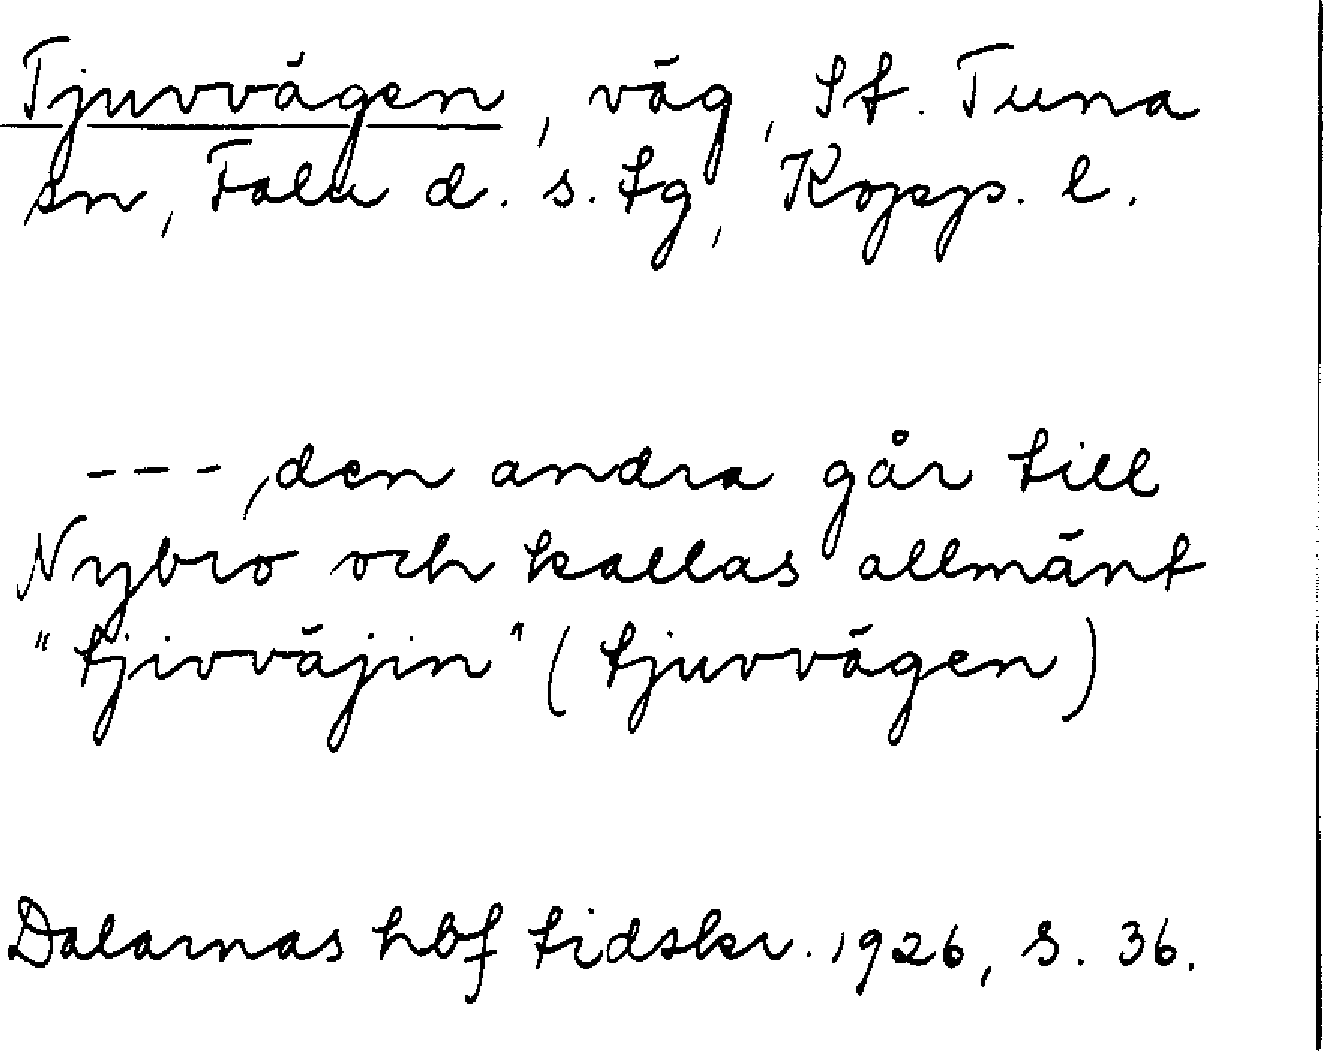 Tjuvvägen, väg, St. Tuna
sn, Falu d. s. tg, Kopp. l.
---, den andra går till
Nybro och kallas allmänt
"tjivväjin" (tjuvvägen)
Dalarnas hbf tidskr. 1926, s. 36.